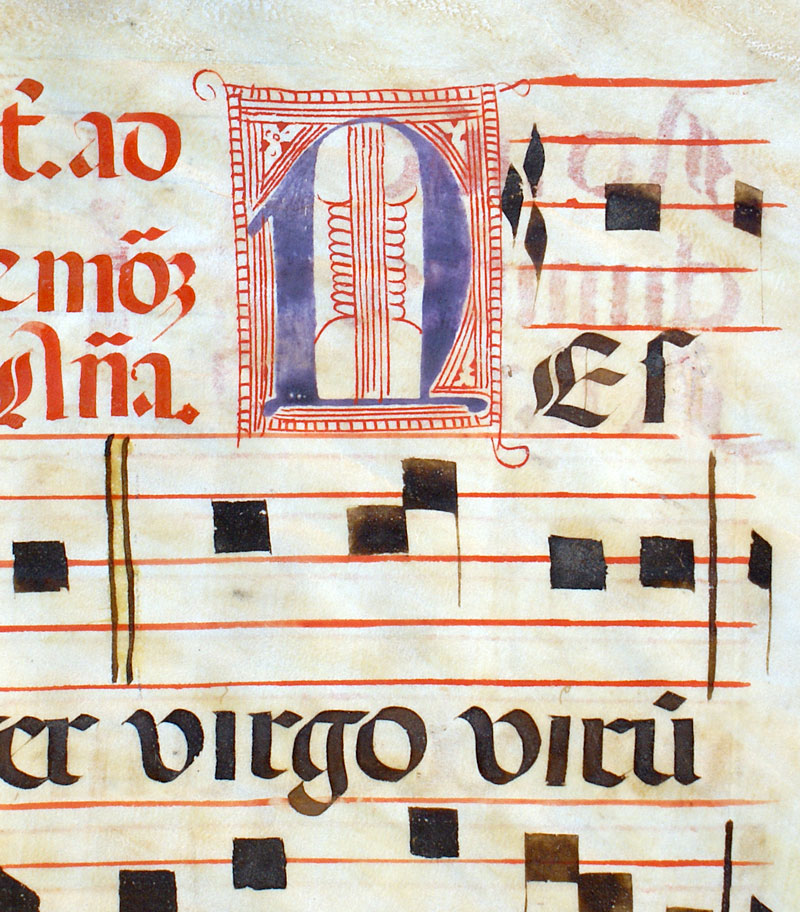 t̄. ad
emõꝝ
Aña.
N Eſ
er virgo virū